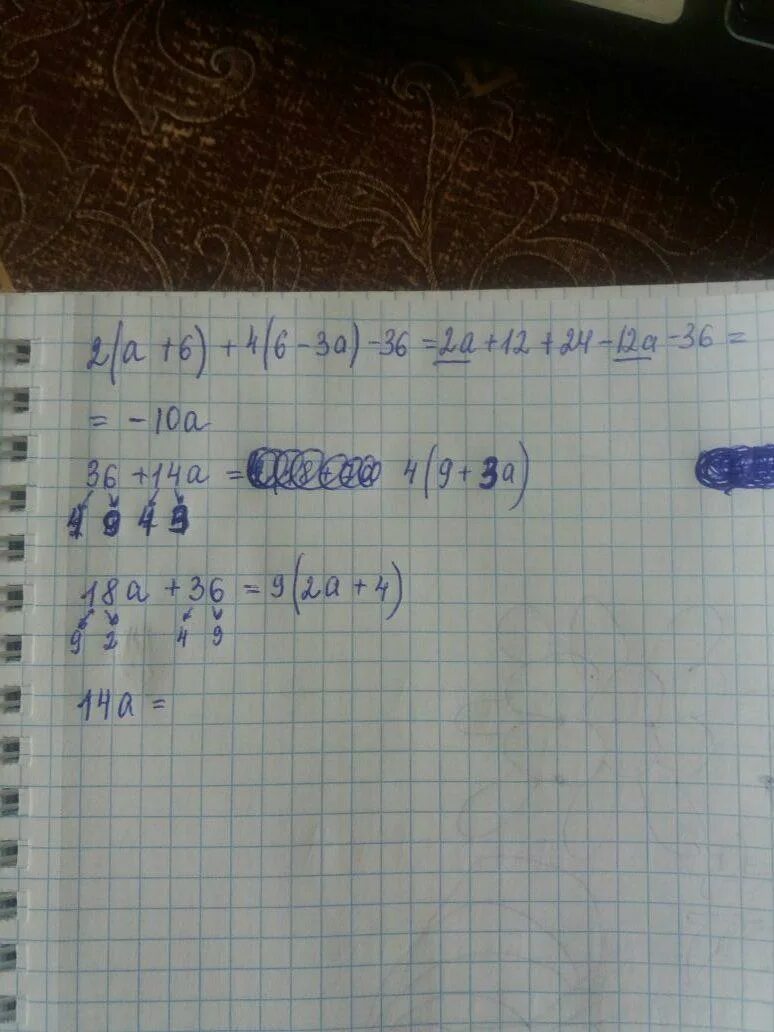 2(a + 6) + 4(6 - 3a) - 36 = 2a + 12 + 24 - 12a - 36 =
= - 10a
36 + 14a = 4(9 + 3a)
4 9 4 3
18a + 36 = 9(2a + 4)
9 2 4 9
14a =